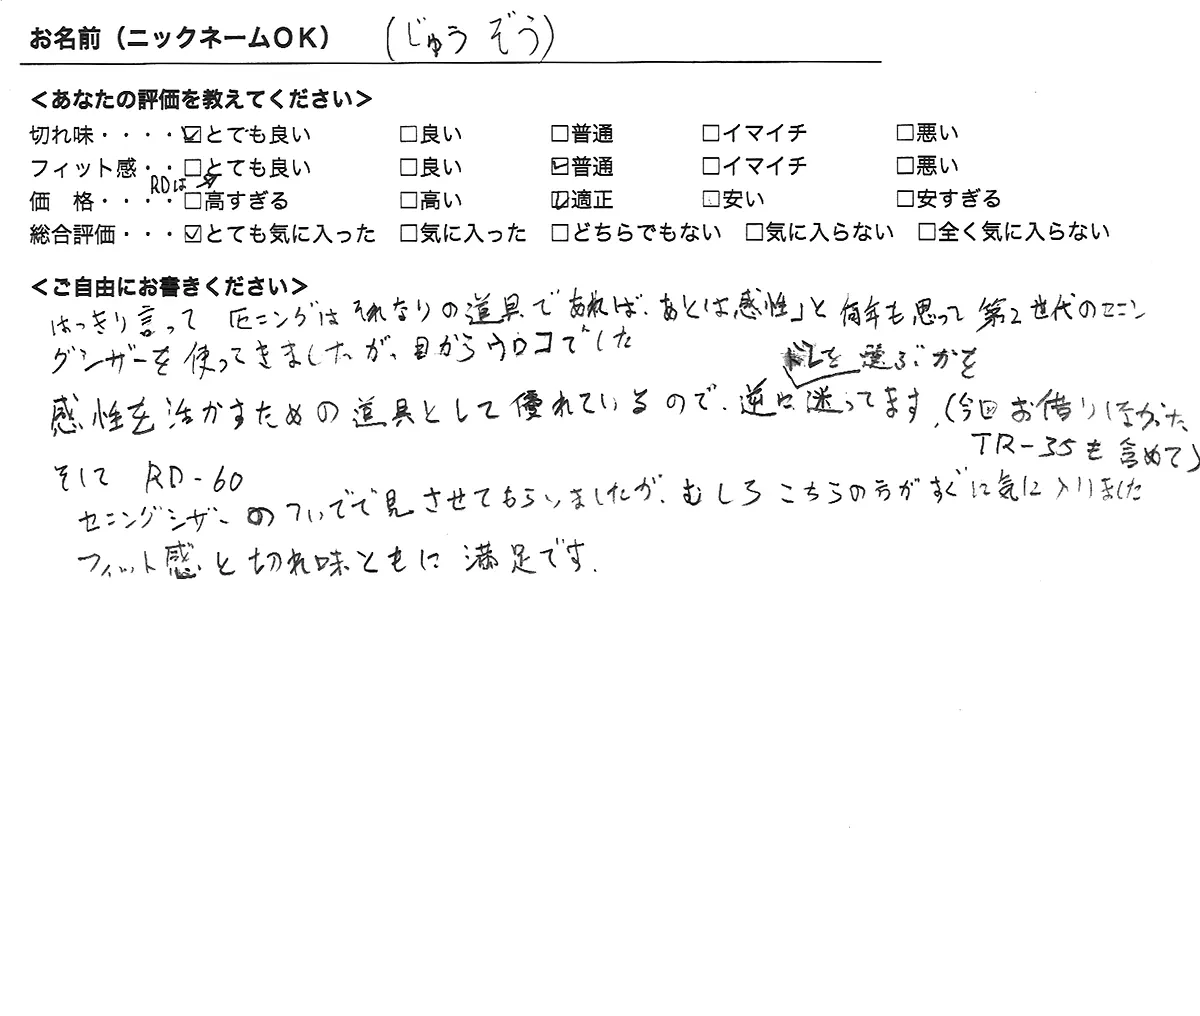 お名前（ニックネームＯＫ） （じゅうぞう）
＜あなたの評価を教えてください＞
切れ味・・・・☑とても良い □良い □普通 □イマイチ □悪い
フィット感・・□とても良い □良い ☑普通 □イマイチ □悪い
RDは→
価　格・・・・□高すぎる □高い ☑適正 □安い □安すぎる
総合評価・・・☑とても気に入った □気に入った □どちらでもない □気に入らない □全く気に入らない
＜ご自由にお書きください＞
はっきり言って 「セニングはそれなりの道具であれば、あとは感性」と何年も思って 第2世代のセニン
グシザーを使ってきましたが、目からウロコでした
どれを選ぶかを
感性を活かすための道具として優れているので、逆に迷ってます。（今回お借りしなかった
TR-35も含めて）
そして RD-60
セニングシザーのついでで見させてもらいましたが、むしろこちらの方がすぐに気に入りました
フィット感と切れ味ともに満足です.